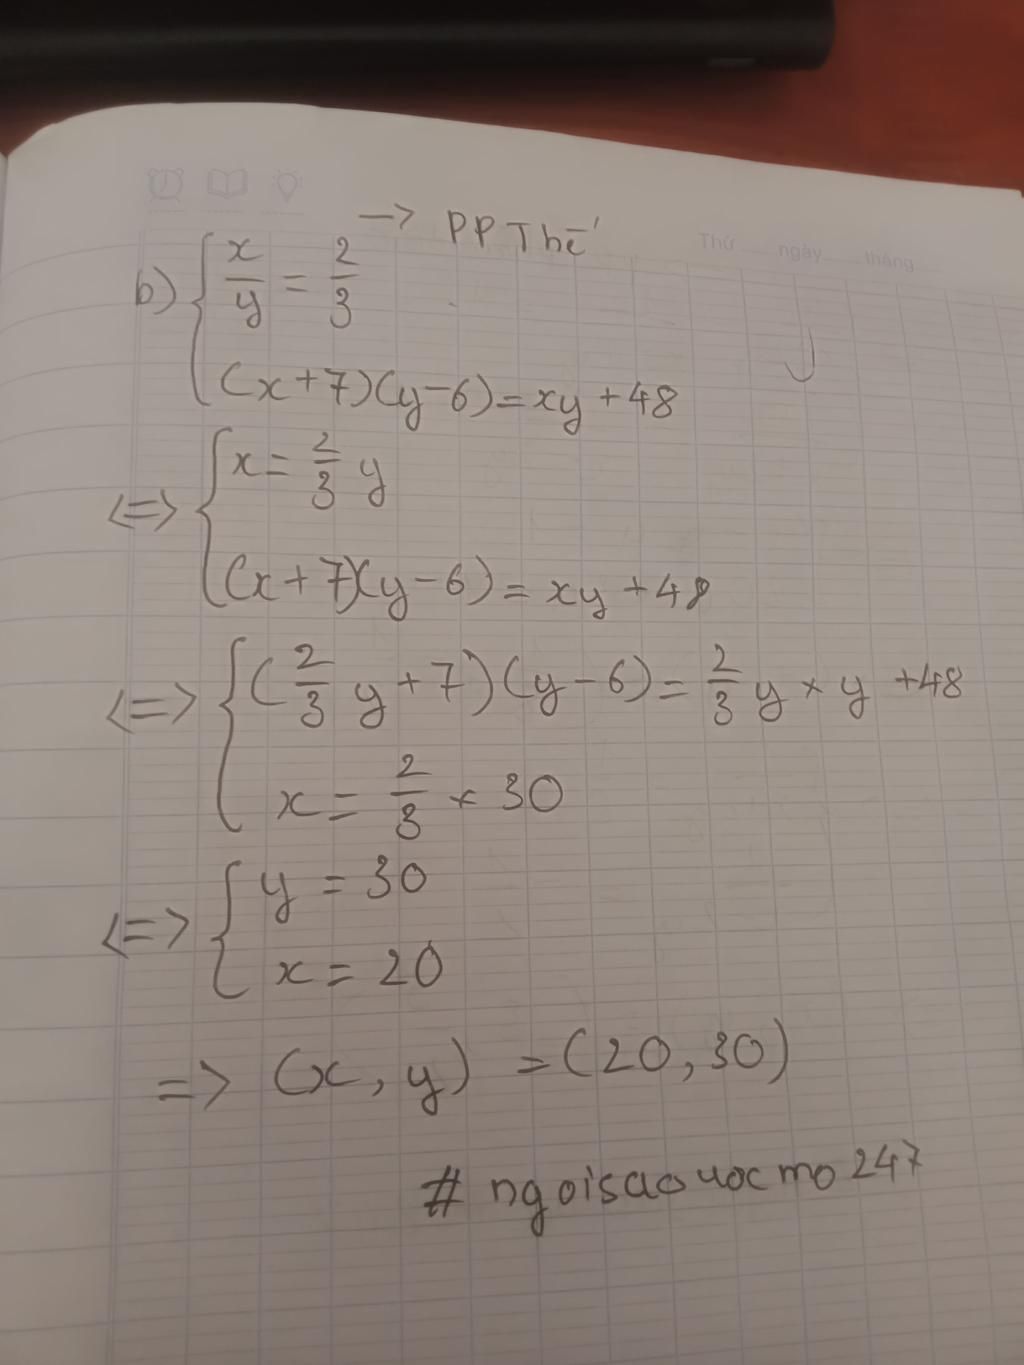 → PP Thế
Thứ ngày tháng
b) { x/y = 2/3
(x+7)(y-6)=xy+48
<=> { x = 2/3 y
(x+7)(y-6)=xy+48
<=> { (2/3 y+7)(y-6)=2/3 y × y +48
x = 2/3 × 30
<=> { y = 30
x = 20
=> (x, y) = (20, 30)
# ngoisaouocmo247